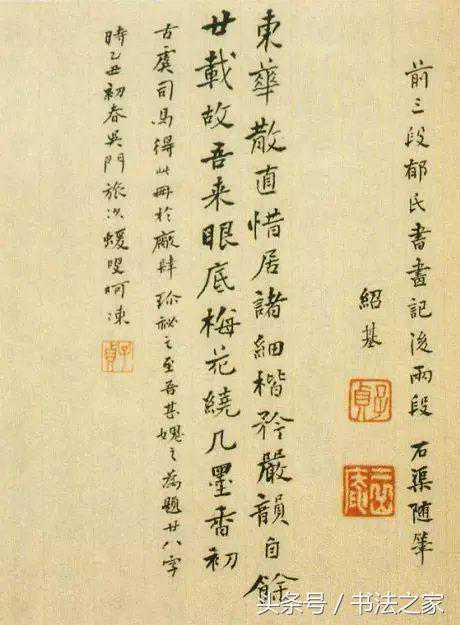 前三段郁氏書畫記後兩段石渠随筆
紹基
子貞
東華散直惜居諸細楷矜嚴韻自餘
廿載故吾来眼底梅花繞几墨香初
古虞司馬得此冊於廠肆珍祕之至吾甚媿之為題廿八字
時乙丑初春吳門旅次蝯叟呵凍
子貞
头条号 / 书法之家